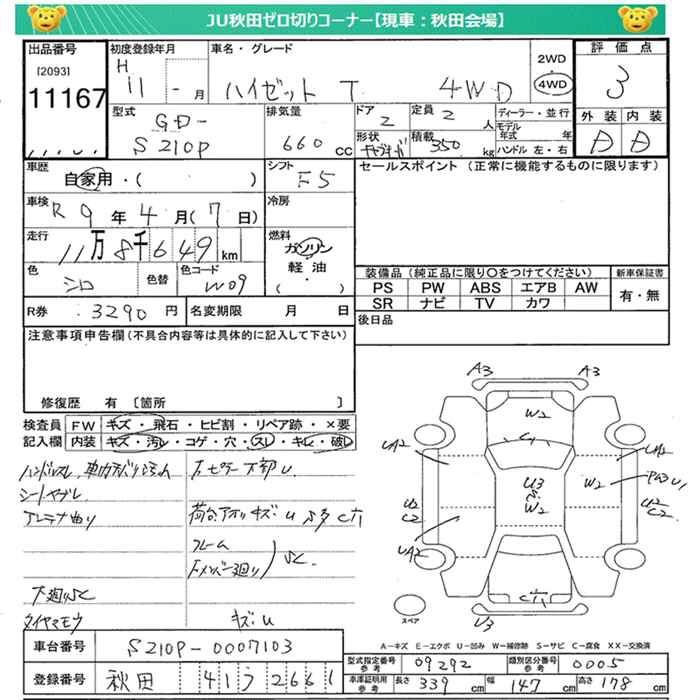 JU秋田ゼロ切りコーナー【現車：秋田会場】
出品番号
[2093]
11167
初度登録年月
H 11 - 月
車名・グレード
ハイゼット T 4WD
2WD
・
4WD
評価点
3
外装 内装
D D
型式
GD-
S210P
排気量
660 cc
ドア
2
定員
2 人
形状
積載
350 kg
ディーラー・並行
モデル年式 年
ハンドル 左・右
車歴
自家用・( )
シフト
F5
セールスポイント（正常に機能するものに限ります）
車検
R 9 年 4 月(7 日)
冷房
走行
11万8千649km
燃料
ガソリン
軽油
( )
色
シロ
色替
色コード
W09
装備品（純正品に限り〇をつけてください）
新車保証書
PS PW ABS エアB AW
SR ナビ TV カワ
有・無
R券
3290 円
名変期限 月 日
後日品
注意事項申告欄(不具合内容等は具体的に記入して下さい)
修復歴 有〔箇所 〕
検査員記入欄
FW キズ・飛石・ヒビ割・リペア跡・×要
内装 キズ・汚レ・コゲ・穴・スレ・キレ・破レ
ハンドルスレ、
シートヤブレ
アンテナ曲り
下廻りSC
タイヤマモウ
キズ・U
フレーム
A3 A3
W2
UA2
U3
S
W2
W2
U2
C2
U2
C2
UA2
U3
スペア
A－キズ E－エクボ U－凹み W－補修跡 S－サビ C－腐食 XX－交換済
車台番号
S210P-0007103
型式指定番号 参考
09292
類別区分番号 参考
0005
登録番号
秋田 41
車庫証明用 参考
長さ 339 cm 幅 147 cm 高さ 178 cm